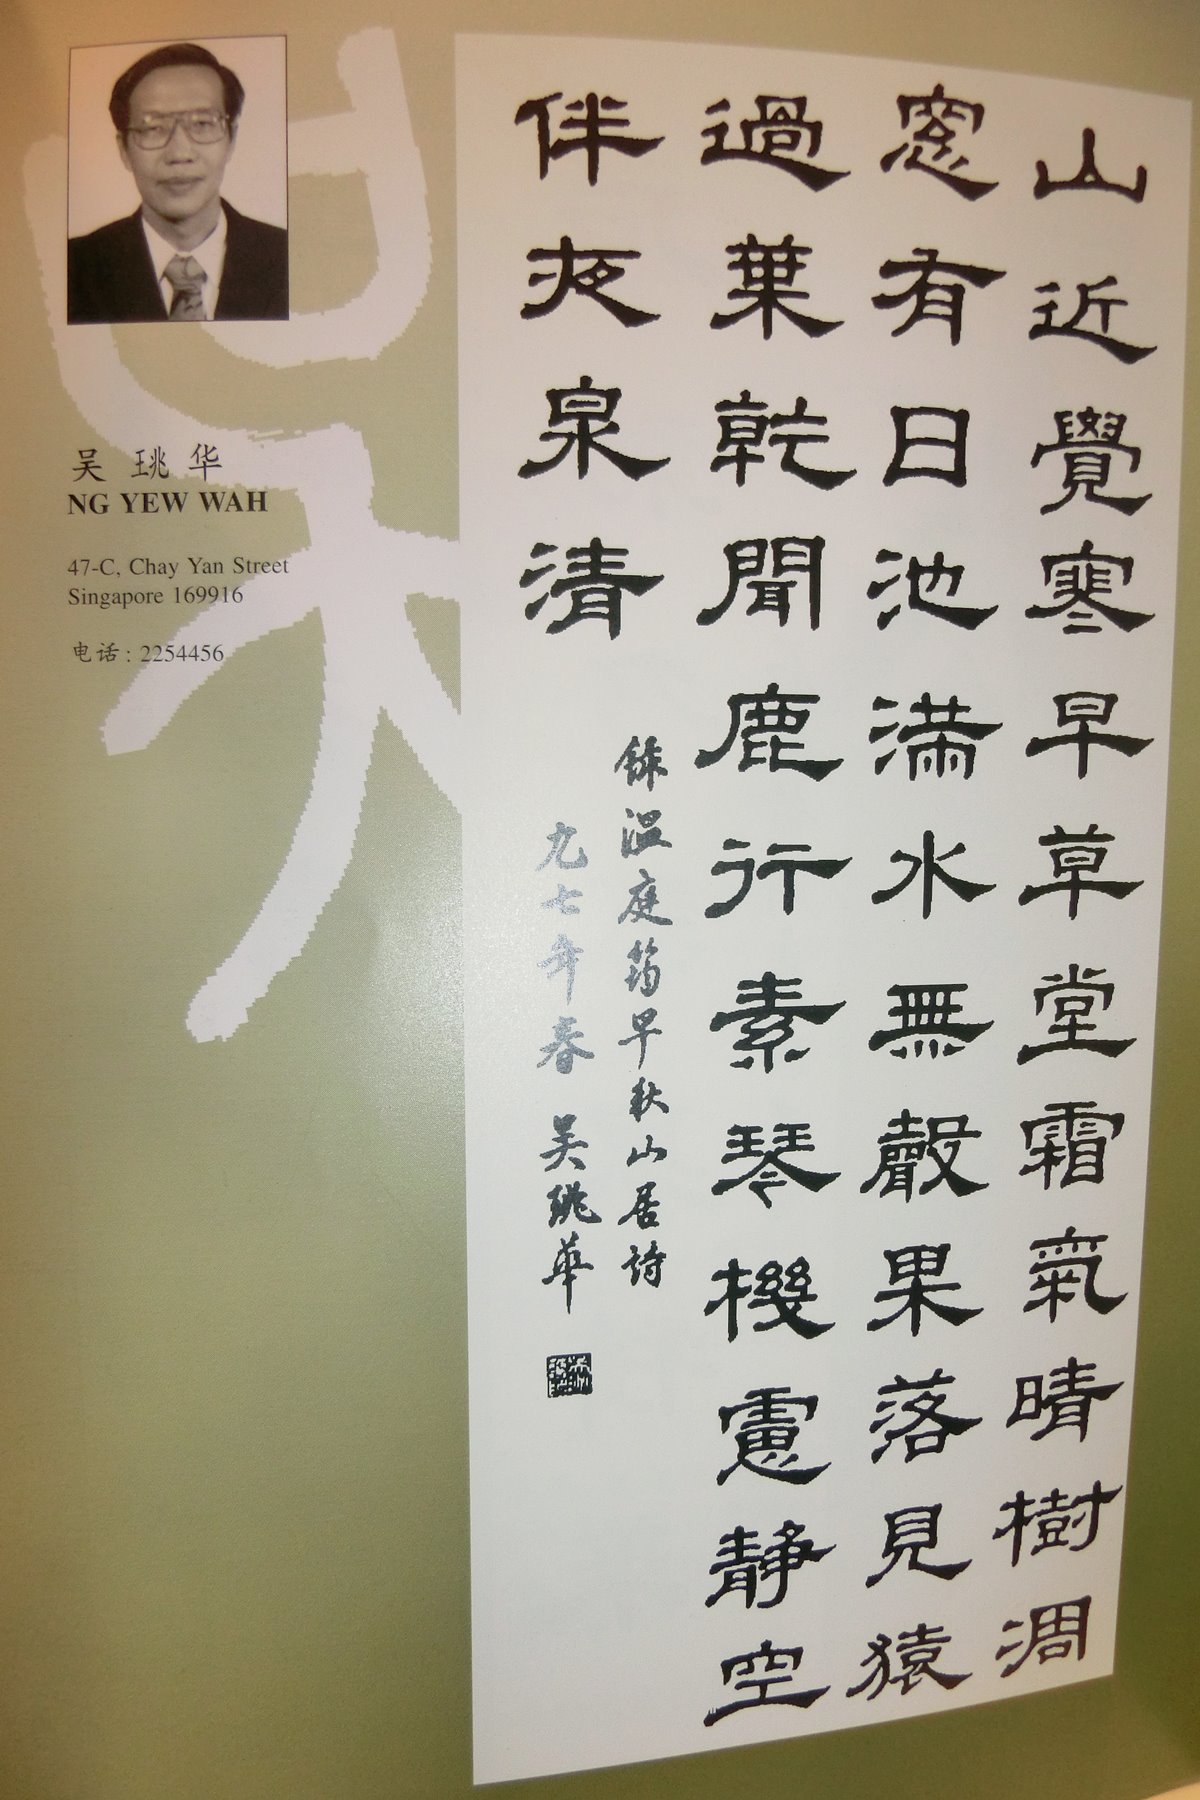 吴珧华
NG YEW WAH
47-C, Chay Yan Street
Singapore 169916
电话: 2254456
山近覺寒早草堂霜氣晴樹凋
窓有日池满水無聲果落見猿
過葉乾聞鹿行素琴機慮静空
伴夜泉清
錄温庭筠早秋山居詩
九七年春 吴珧華